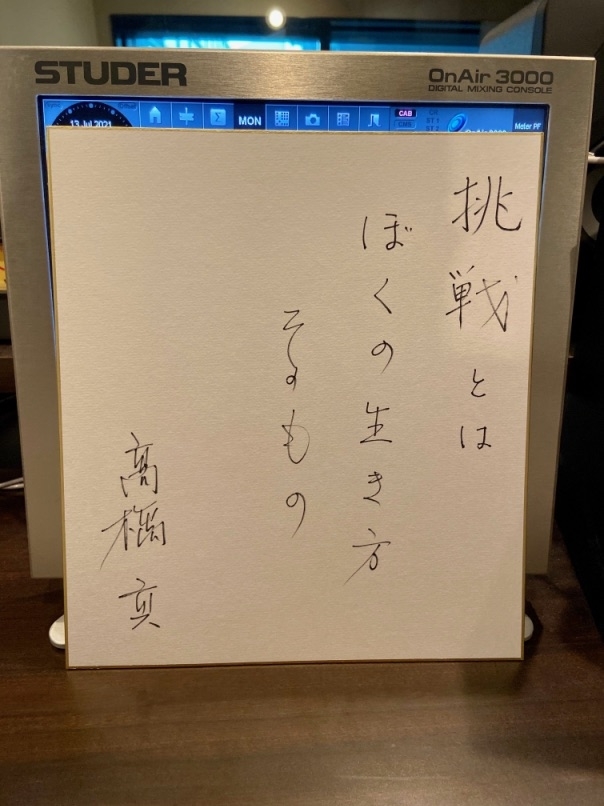 STUDER
OnAir 3000
DIGITAL MIXING CONSOLE
13 Jul 2021
MON
CAB
Meter PF
挑戦とは
ぼくの生き方
そのもの
高橋真